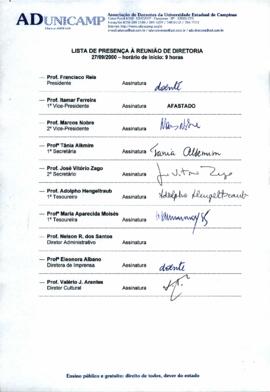 ADUNICAMP
Associação de Docentes da Universidade Estadual de Campinas
LISTA DE PRESENÇA À REUNIÃO DE DIRETORIA
27/09/2000 – horário de início: 9 horas
— Prof. Francisco Reis
Presidente Assinatura doente
— Prof. Itamar Ferreira
1º Vice-Presidente Assinatura AFASTADO
— Prof. Marcos Nobre
2º Vice-Presidente Assinatura
— Profª Tânia Alkmim
1ª Secretária Assinatura Tania Alkmim
— Prof. José Vitório Zago
2º Secretário Assinatura
— Prof. Adolpho Hengeltraub
1º Tesoureiro Assinatura Adolpho Hengeltraub
— Profª Maria Aparecida Moisés
1ª Tesoureira Assinatura
— Prof. Nelson R. dos Santos
Diretor Administrativo Assinatura
— Profª Eleonora Albano
Diretora de Imprensa Assinatura doente
— Prof. Valério J. Arantes
Diretor Cultural Assinatura
Ensino público e gratuito: direito de todos, dever do estado